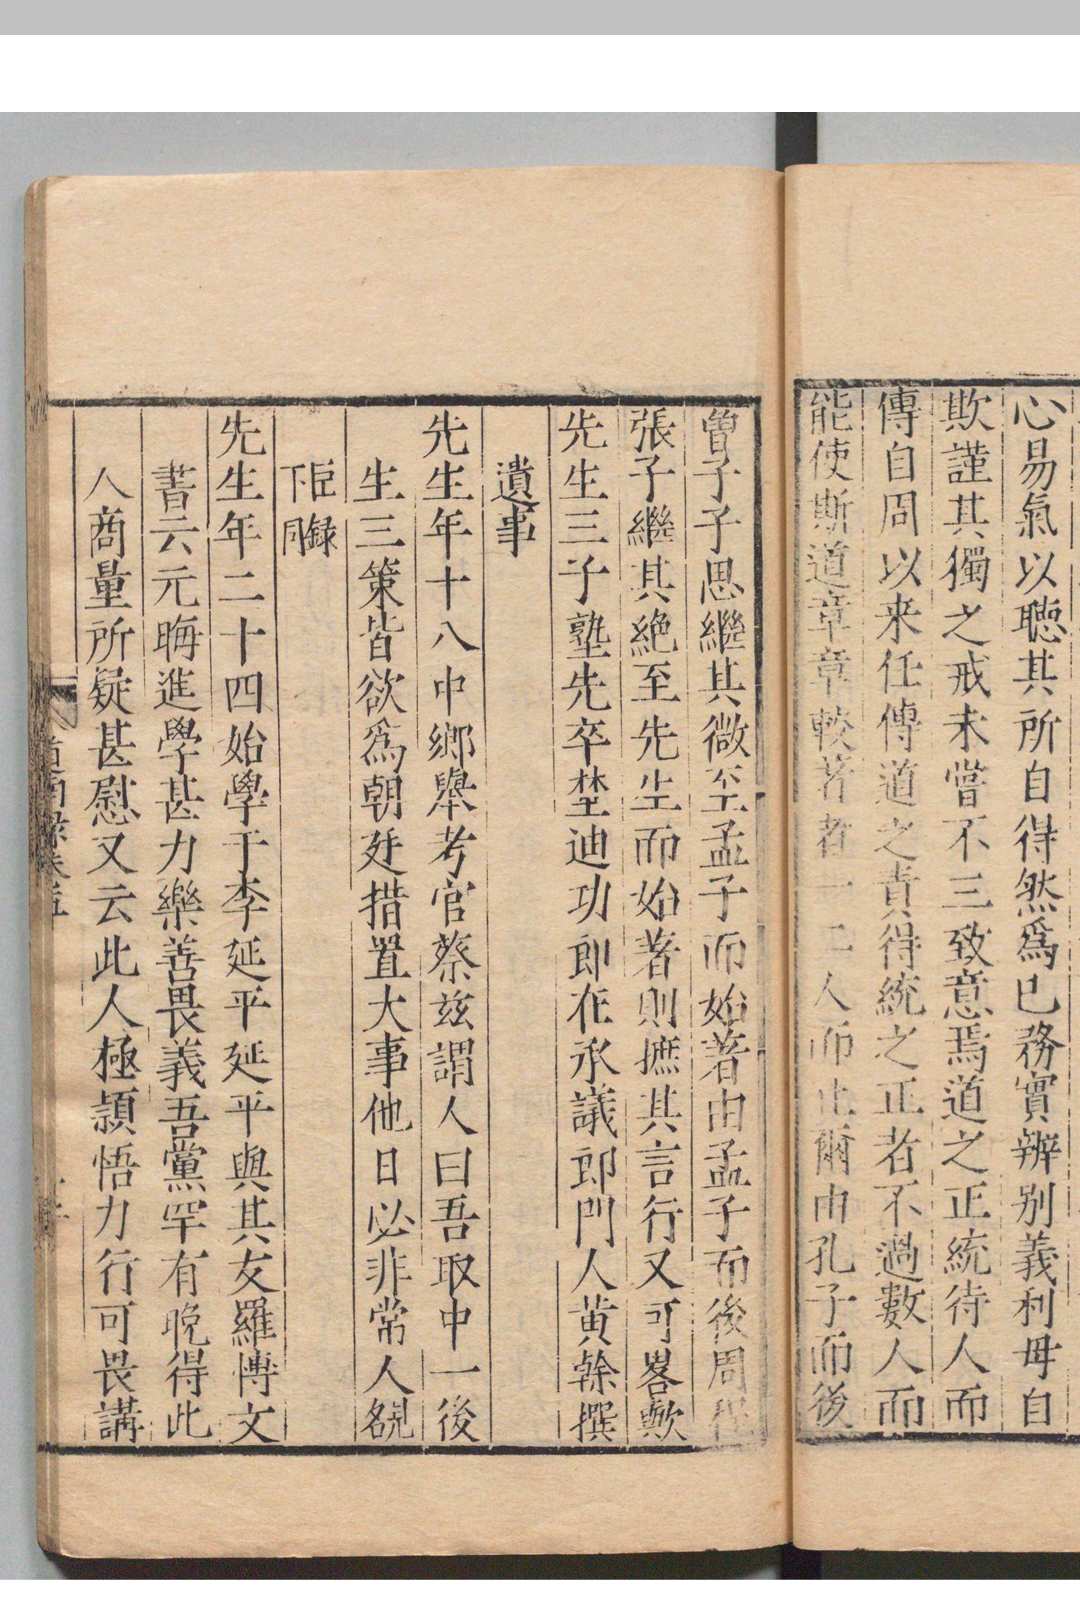 心易氣以聽其所自得然爲已務實辨別義利毋自
欺謹其獨之戒未嘗不三致意焉道之正統待人而
傳自周以来任傳道之責得統之正者不過數人而
能使斯道章章較著者一二人而止爾由孔子而後
曾子子思繼其微至孟子而始著由孟子而後周程
張子繼其絶至先生而始著則摭其言行又可畧歟
先生三子塾先卒埜迪功郎在承議郎門人黄榦撰
遺事
先生年十八中鄉舉考官蔡兹謂人曰吾取中一後
生三策皆欲爲朝廷措置大事他日必非常人
名臣
錄下同
先生年二十四始學于李延平延平與其友羅博文
書云元晦進學甚力樂善畏義吾黨罕有晚得此
人商量所疑甚慰又云此人極頴悟力行可畏講
道南錄卷五